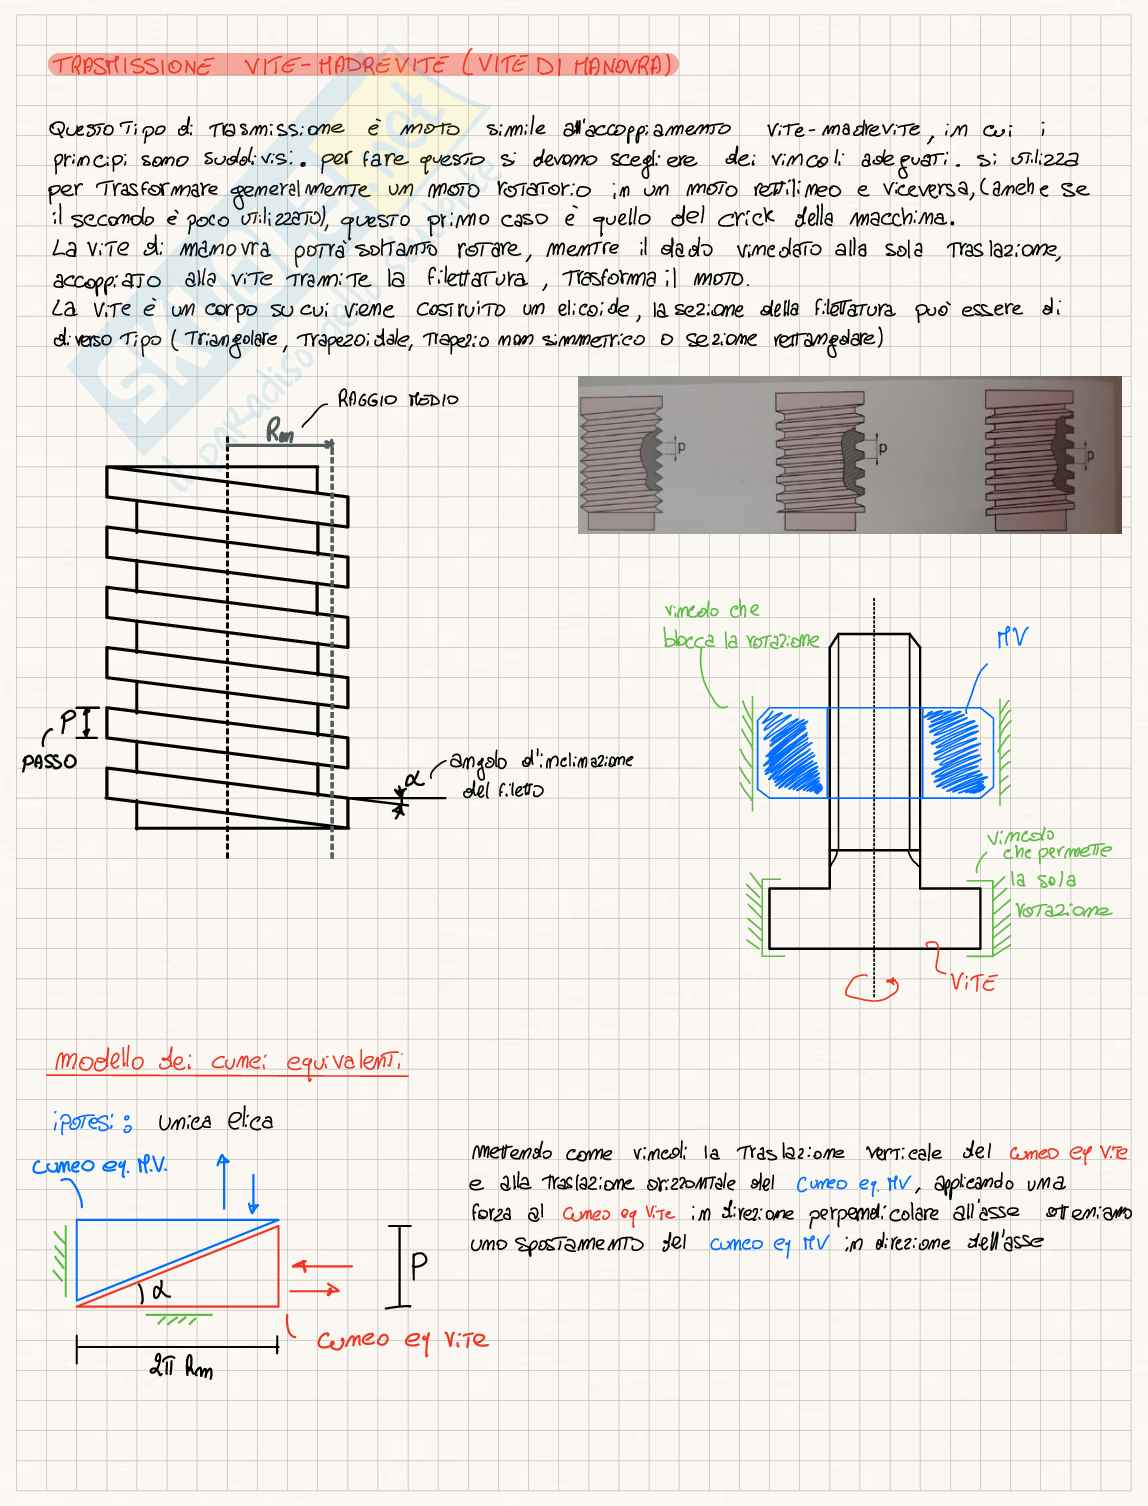 TRASMISSIONE VITE-MADREVITE (VITE DI MANOVRA)
Questo tipo di trasmissione è moto simile all'accoppiamento vite-madrevite, in cui i
principi sono suddivisi. per fare questo si devono scegliere dei vincoli adeguati. si utilizza
per trasformare generalmente un moto rotatorio in un moto rettilineo e viceversa, (anche se
il secondo è poco utilizzato), questo primo caso è quello del crick della macchina.
La vite di manovra potrà soltanto rotare, mentre il dado vincolato alla sola traslazione,
accoppiato alla vite tramite la filettatura, trasforma il moto.
La vite è un corpo su cui viene costruito un elicoide, la sezione della filettatura può essere di
diverso tipo (triangolare, trapezoidale, trapezio non simmetrico o sezione rettangolare)
RAGGIO MEDIO
Rm
P
P
P
vincolo che
blocca la rotazione
MV
P
PASSO
α
angolo d'inclinazione
del filetto
vincolo
che permette
la sola
rotazione
VITE
modello dei cunei equivalenti
ipotesi: unica elica
cuneo eq. M.V.
α
P
cuneo eq vite
2π Rm
mettendo come vincoli la traslazione verticale del cuneo eq vite
e alla traslazione orizzontale del cuneo eq. MV, applicando una
forza al cuneo eq vite in direzione perpendicolare all'asse otteniamo
uno spostamento del cuneo eq MV in direzione dell'asse